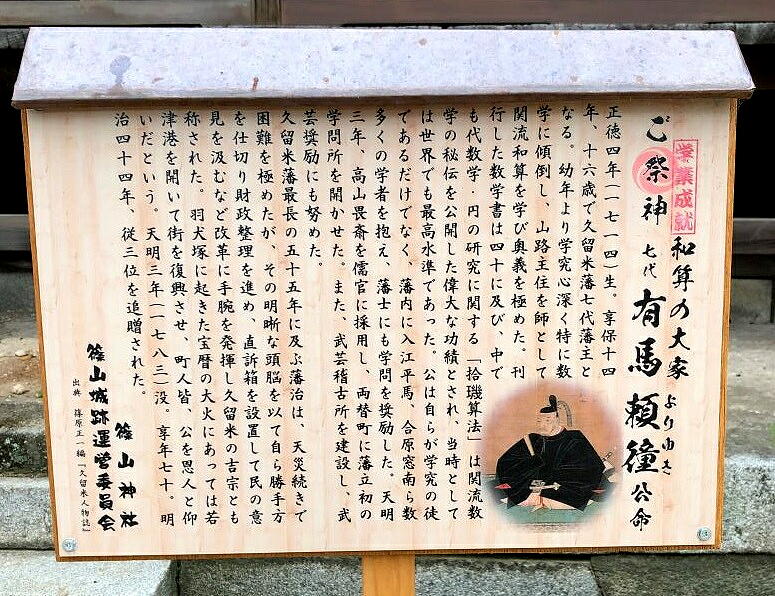 学業成就
和算の大家
ご祭神 七代 有馬頼徸公命
よりゆき
正徳四年(一七一四)生。享保十四
年、十六歳で久留米藩七代藩主と
なる。幼年より学究心深く特に数
学に傾倒し、山路主住を師として
関流和算を学び奥義を極めた。刊
行した数学書は四十に及び、中で
も代数学・円の研究に関する「拾璣算法」は関流数
学の秘伝を公開した偉大な功績とされ、当時として
は世界でも最高水準であった。公は自らが学究の徒
であるだけでなく、藩内に入江平馬、合原窓南ら数
多くの学者を抱え、藩士にも学問を奨励した。天明
三年、高山畏斎を儒官に採用し、両替町に藩立初の
学問所を開かせた。また、武芸稽古所を建設し、武
芸奨励にも努めた。
久留米藩最長の五十五年に及ぶ藩治は、天災続きで
困難を極めたが、その明晰な頭脳を以て自ら勝手方
を仕切り財政整理を進め、直訴箱を設置して民の意
見を汲むなど改革に手腕を発揮し久留米の吉宗とも
称された。羽犬塚に起きた宝暦の大火にあっては若
津港を開いて街を復興させ、町人皆、公を恩人と仰
いだという。天明三年(一七八三)没。享年七十。明
治四十四年、従三位を追贈された。
篠山神社
篠山城跡運営委員会
出典 篠原正一編『久留米人物誌』